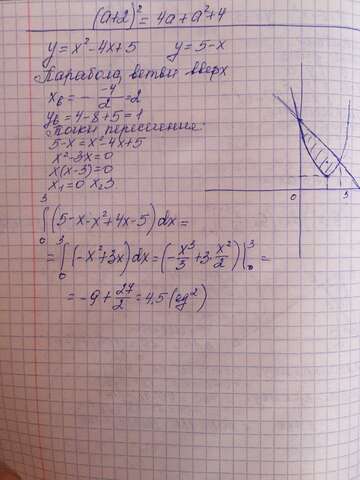 (a+2)² = 4a + a² + 4
y = x² - 4x + 5   y = 5 - x
Парабола, ветви вверх
x_в = - -4/2 = 2
y_в = 4 - 8 + 5 = 1
Точки пересечения:
5 - x = x² - 4x + 5
x² - 3x = 0
x(x - 3) = 0
x₁ = 0 x₂ 3
∫₀³ (5 - x - x² + 4x - 5) dx =
= ∫₀³ (-x² + 3x) dx = (- x³/3 + 3 · x²/2) |₀³ =
= -9 + 27/2 = 4,5 (ед²)
0 3